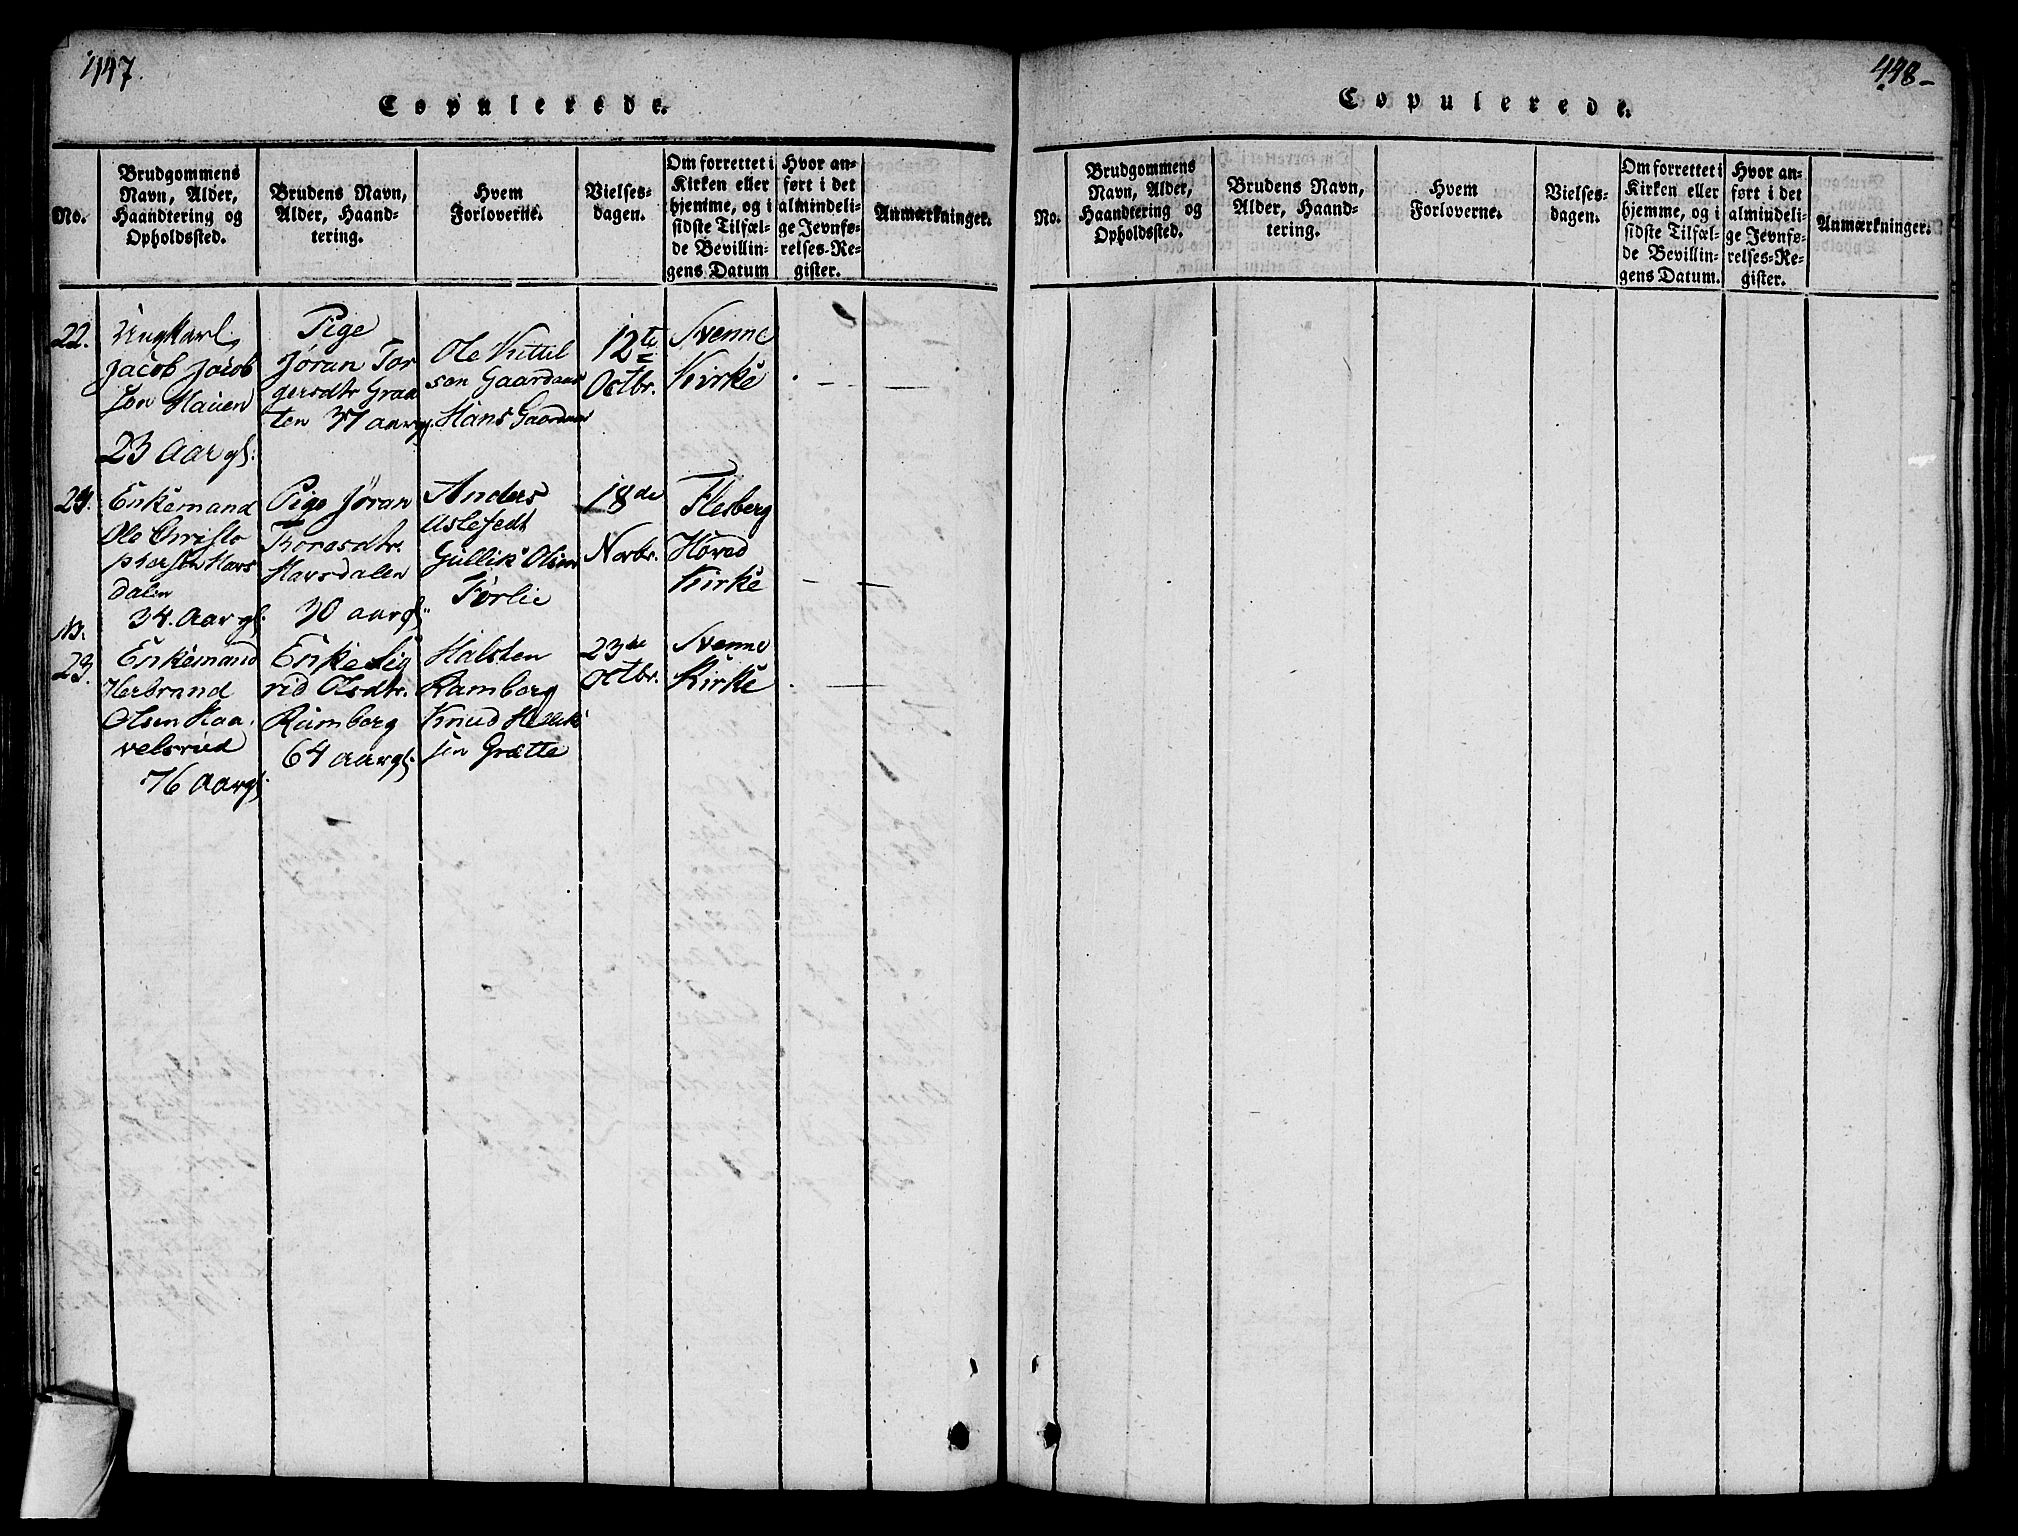 447.
Copulerede.
No.
Brudgommens
Navn, Alder,
Haandtering og
Opholdssted.
Brudens Navn,
Alder, Haand-
tering.
Hvem
Forloverne.
Vielses-
dagen.
Om forrettet i
Kirken eller
hjemme, og i
sidste Tilfæl-
de Bevillin-
gens Datum
Hvor an-
ført i det
almindeli-
ge Jevnfø-
relses-Re-
gister.
Anmærkninger.
22.
Ungkarl
Jacob Jacob
sen Hauen
23 Aar gl:
Pige
Jøran Tor
gersdtr Graa
ten 37 aar gl.
Ole Kittil
sen Gaardaas
Hans Gaardaas
12te
Octbr.
Svenne
Kirke
24.
Enkemand
Ole Christo
phersen Havs
dalen
34. Aar gl.
Pige Jøran
Toresdtr.
Havsdalen
30 aar gl:
Anders
Aslefedt
Gullik Olsen
Førlie
18de
Novbr.
Flesberg
Hoved
Kirke
N.
23.
Enkemand
Herbrand
Olsen Haa
velsrud
76 Aar gl.
Enke Sig
rid Olsdtr.
Ramberg
64 aar gl.
Halsten
Ramberg
Knud Hellik
sen Grætte
23de
Octbr.
Svenne
Kirke
448-
Copulerede.
No.
Brudgommens
Navn, Alder,
Haandtering og
Opholdssted.
Brudens Navn,
Alder, Haand-
tering.
Hvem
Forloverne.
Vielses-
dagen.
Om forrettet i
Kirken eller
hjemme, og i
sidste Tilfæl-
de Bevillin-
gens Datum.
Hvor an-
ført i det
almindeli-
ge Jevnfø-
relses-Re-
gister.
Anmærkninger.